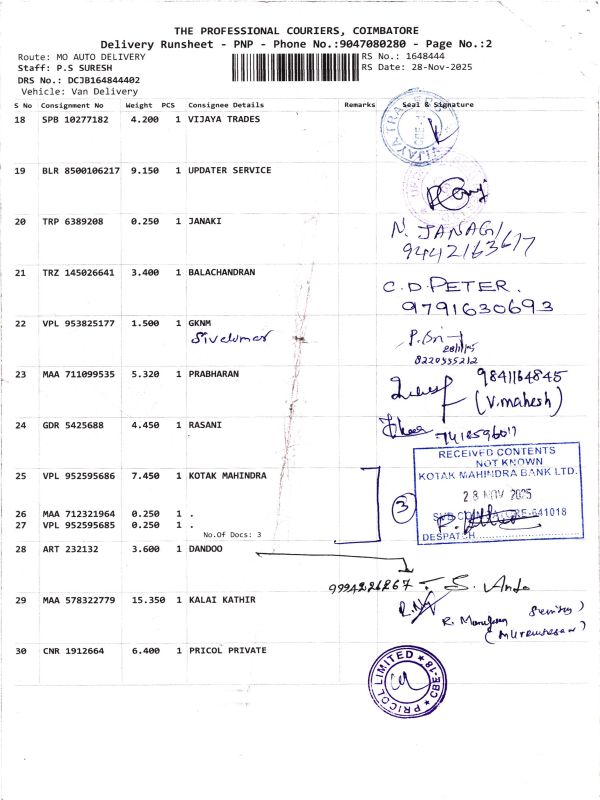 THE PROFESSIONAL COURIERS, COIMBATORE
Delivery Runsheet - PNP - Phone No.:9047080280 - Page No.:2
Route: MO AUTO DELIVERY
RS No.: 1648444
Staff: P.S SURESH
RS Date: 28-Nov-2025
DRS No.: DCJB164844402
Vehicle: Van Delivery
S No Consignment No Weight PCS Consignee Details Remarks Seal & Signature
18 SPB 10277182 4.200 1 VIJAYA TRADES
19 BLR 8500106217 9.150 1 UPDATER SERVICE
20 TRP 6389208 0.250 1 JANAKI
N. JANAGI
9442163617
21 TRZ 145026641 3.400 1 BALACHANDRAN
C.D.PETER.
9791630693
22 VPL 953825177 1.500 1 GKNM
8220555212
23 MAA 711099535 5.320 1 PRABHARAN
9841164845
(V.mahesh)
24 GDR 5425688 4.450 1 RASANI
RECEIVED CONTENTS
NOT KNOWN
KOTAK MAHINDRA BANK LTD.
28 NOV 2025
641018
DESPATCH
25 VPL 952595686 7.450 1 KOTAK MAHINDRA
3
26 MAA 712321964 0.250 1 .
27 VPL 952595685 0.250 1 .
No.Of Docs: 3
28 ART 232132 3.600 1 DANDOO
29 MAA 578322779 15.350 1 KALAI KATHIR
30 CNR 1912664 6.400 1 PRICOL PRIVATE
PRICOL LIMITED ★ CBE-18 ★